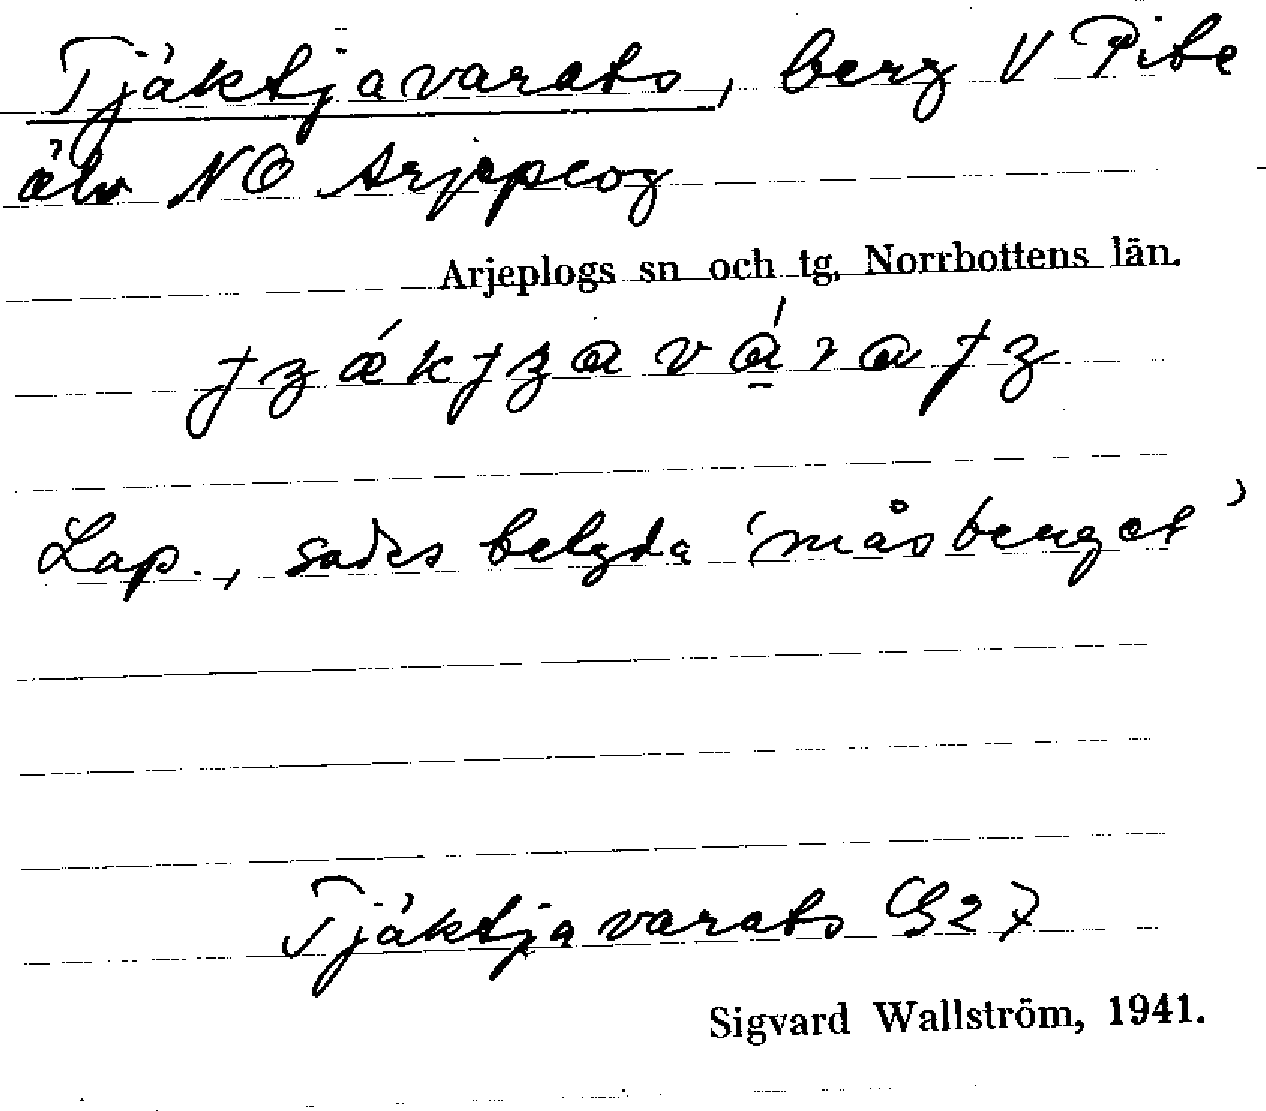 Tjäktjavarats, berg V Pite
älv NO Arjeplog
Arjeplogs sn och tg. Norrbottens län.
Lap., sades betyda 'måsberget'
Tjäktjavarats G27
Sigvard Wallström, 1941.